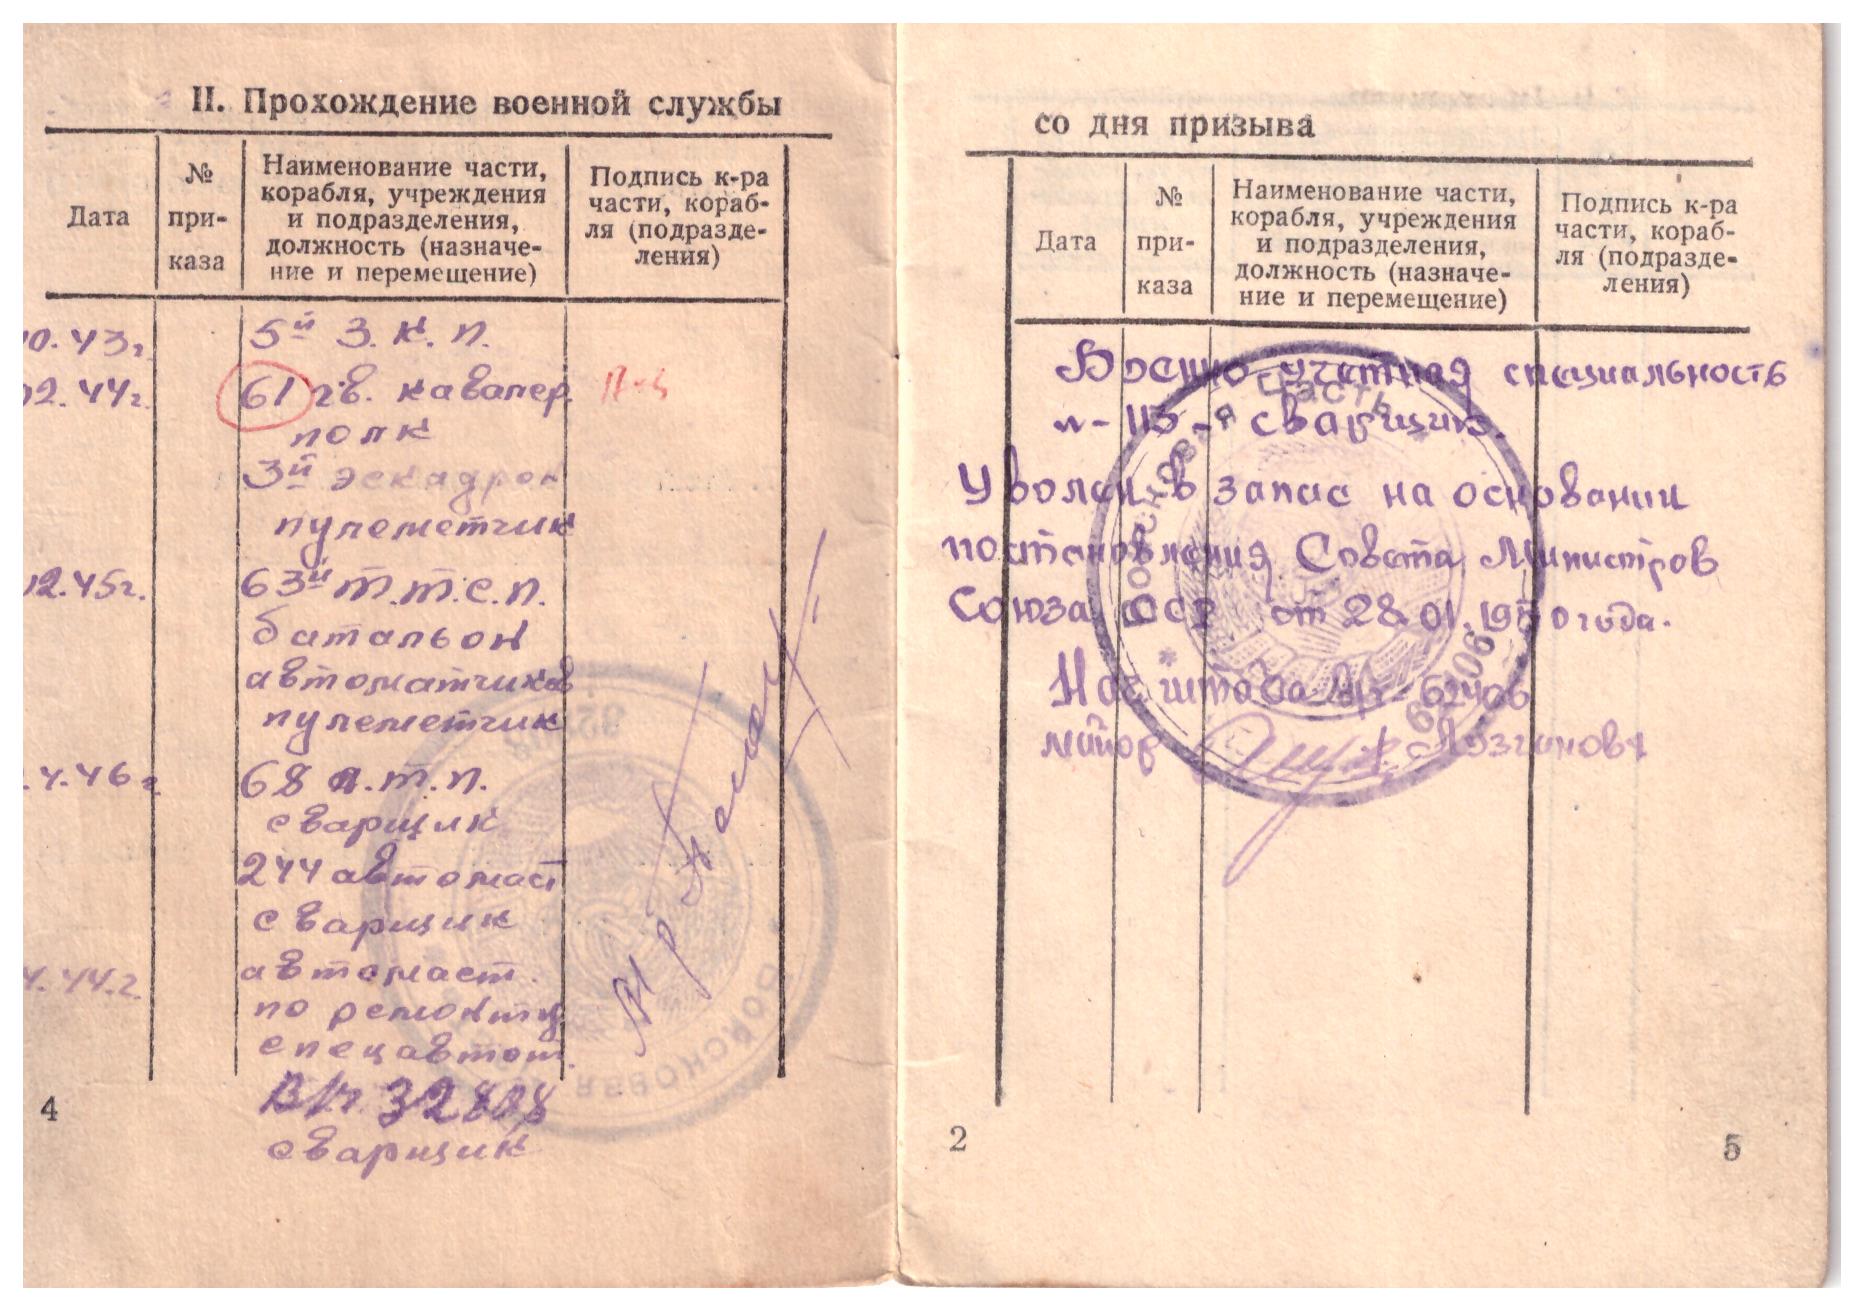 II. Прохождение военной службы
Дата
№
при-
каза
Наименование части,
корабля, учреждения
и подразделения,
должность (назначе-
ние и перемещение)
Подпись к-ра
части, кораб-
ля (подразде-
ления)
0.43г. 5й З.К.П.
02.44г. 61 гв. кавалер.
полк
3й эскадрон
пулеметчик
12.45г. 63й т.т.с.п.
батальон
автоматчиков
пулеметчик
.4.46г. 68 т.п.
сварщик
244 автомаст
сварщик
4.44.г. автомаст.
по ремонту
спецавтот.
В/ч 32808
сварщик
4
со дня призыва
Дата
№
при-
каза
Наименование части,
корабля, учреждения
и подразделения,
должность (назначе-
ние и перемещение)
Подпись к-ра
части, кораб-
ля (подразде-
ления)
Военно-учетная специальность
н-113 - сварщик.
Уволен в запас на основании
постановления Совета Министров
Союза ССР от 28.01.1950 года.
Нач штаба в/ч 62406
майор Лозгинова
ВОЙСКОВАЯ ЧАСТЬ
ВОЙСКОВАЯ
2
5